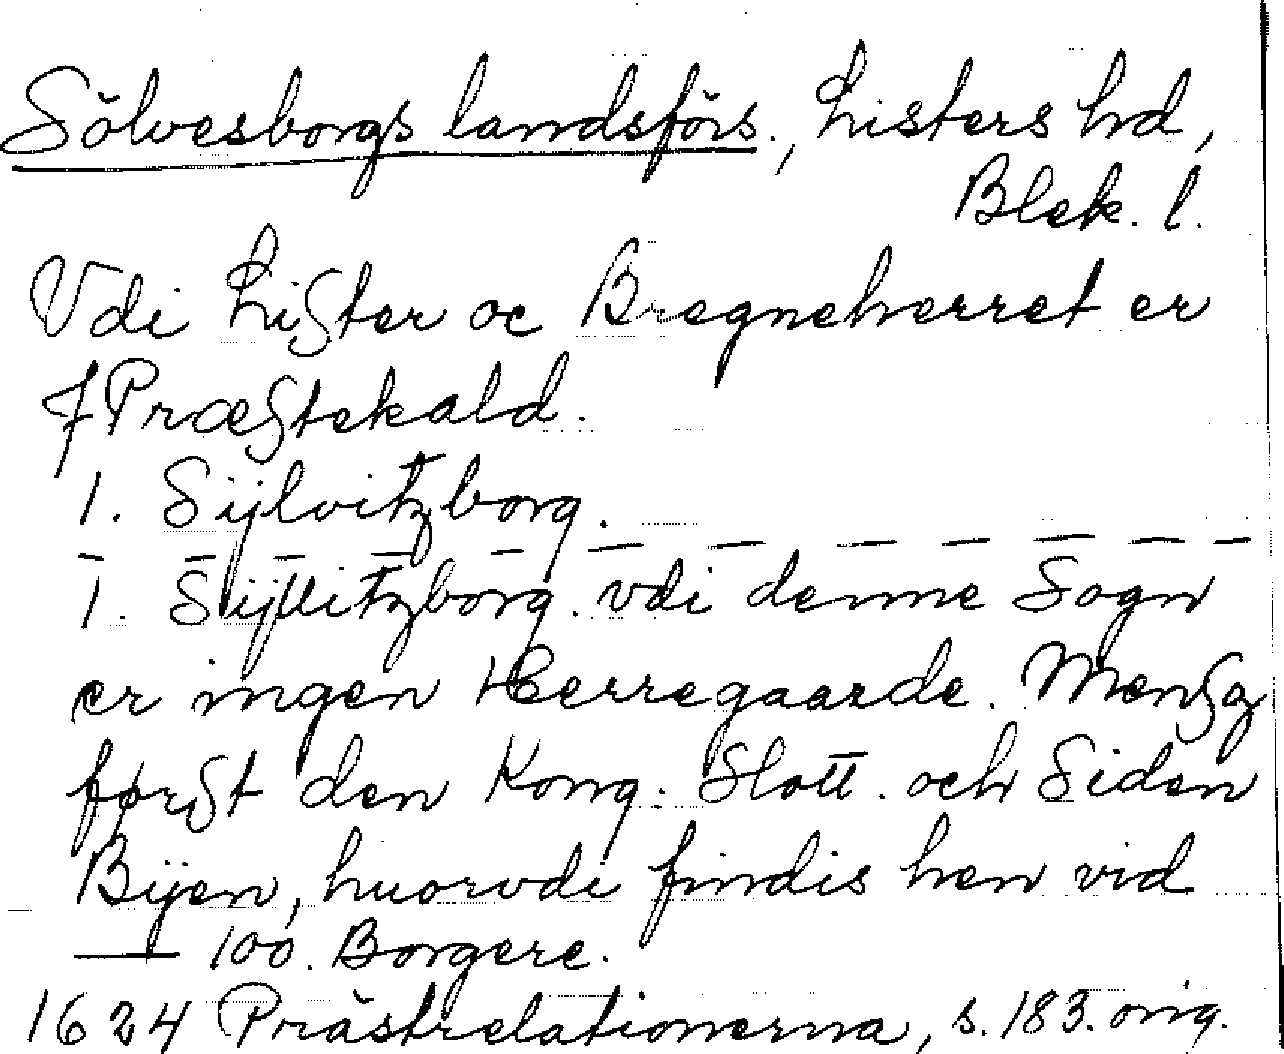 Sölvesborgs landsförs., Listers hd,
Blek. l.
Vdi Lister oc Bregneherret er
7 Præstekald.
1. Sijlvitzborg.
1. Sijllitzborg. vdi denne Sogn
er ingen Herregaarde. Mens
først den Kong. Slott. och Siden
Bijen, huorvdi findis hen vid
100. Borgere.
1624 Prästrelationerna, s. 183. orig.